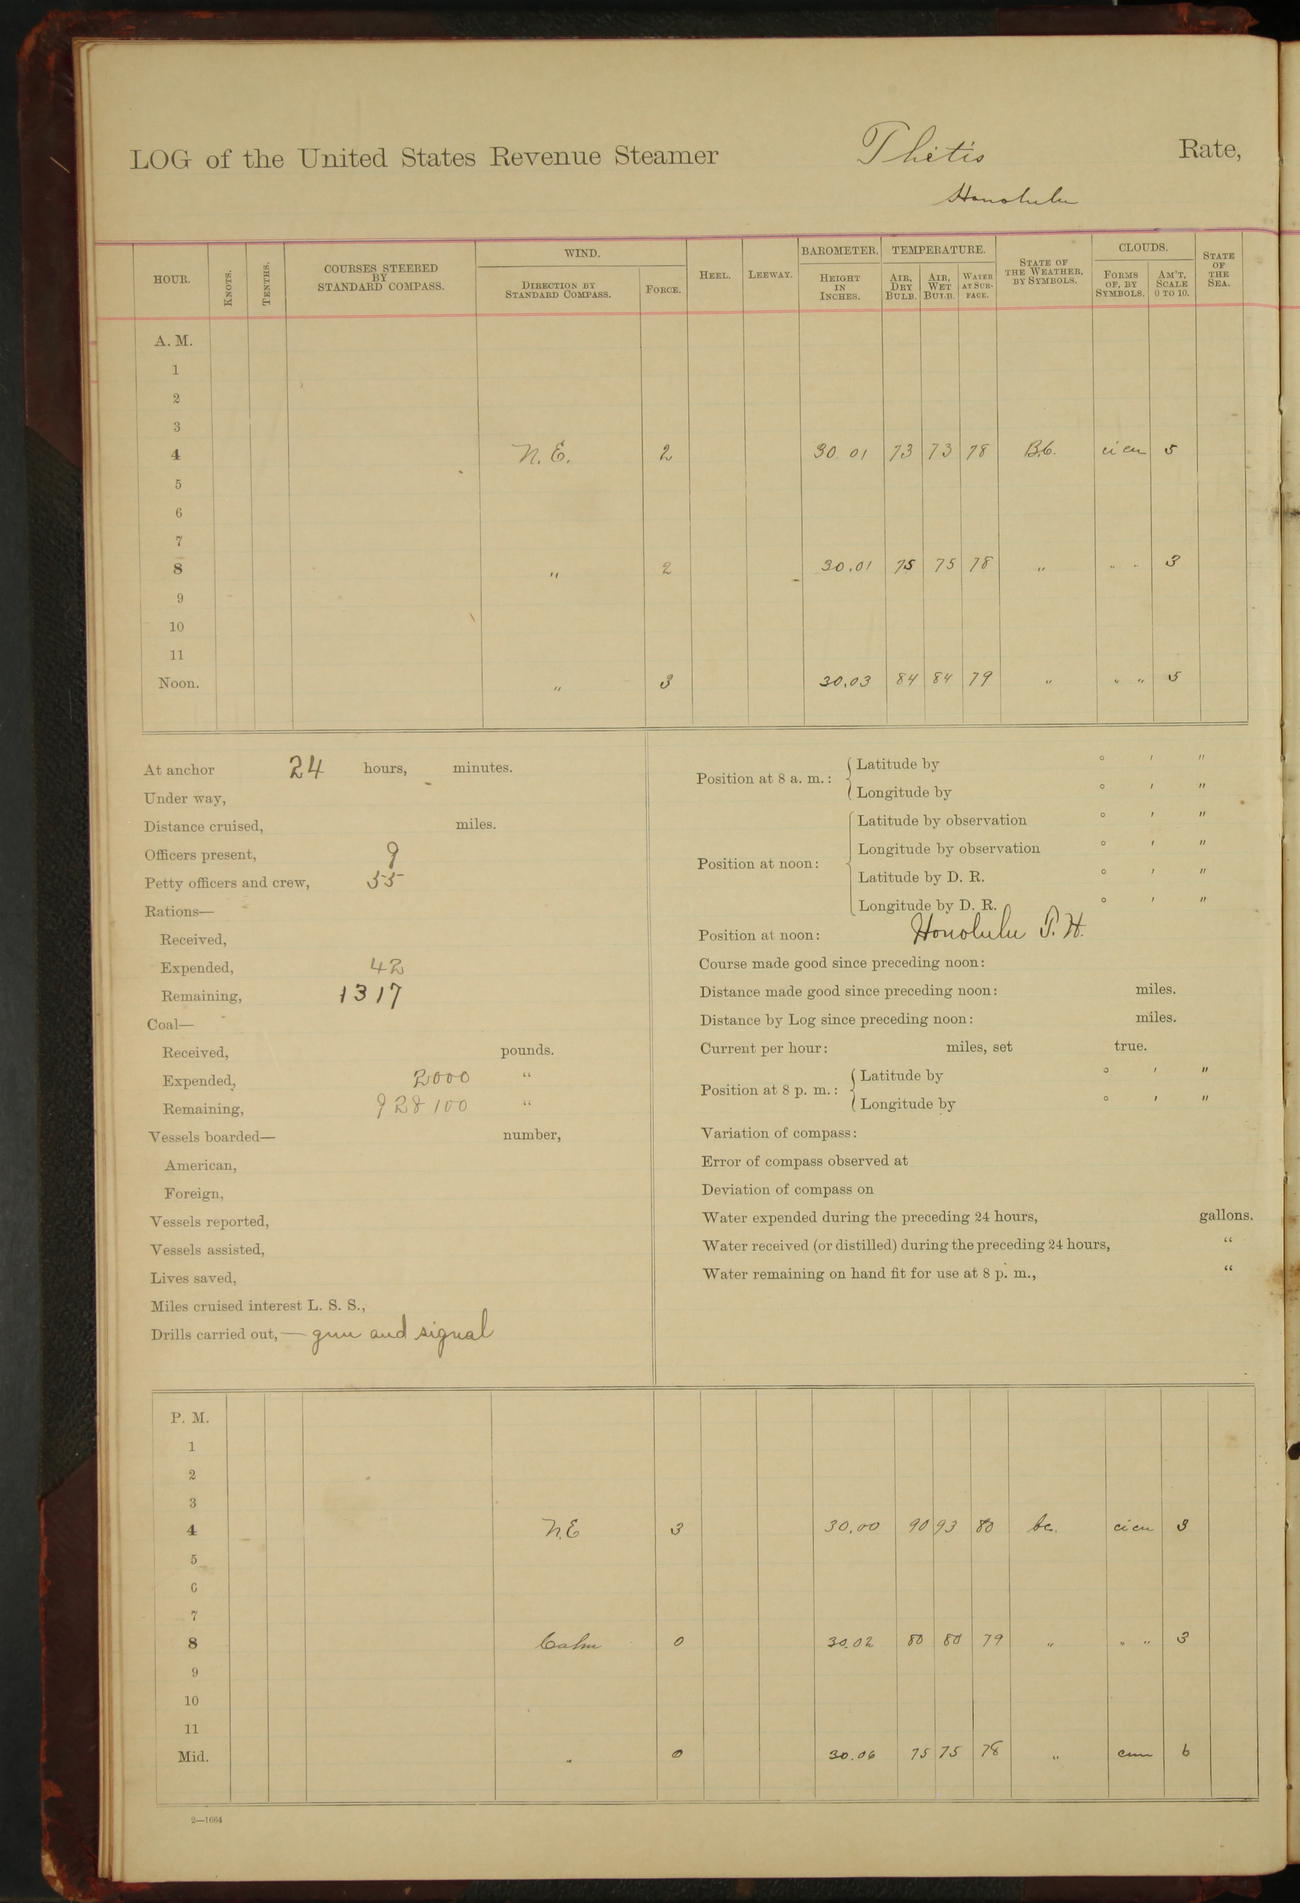 LOG of the United States Revenue Steamer Thetis Rate,
Honolulu
HOUR. KNOTS. TENTHS. COURSES STEERED BY STANDARD COMPASS. WIND. DIRECTION BY STANDARD COMPASS. FORCE. HEEL. LEEWAY. BAROMETER. HEIGHT IN INCHES. TEMPERATURE. AIR, DRY BULB. AIR, WET BULB. WATER AT SURFACE. STATE OF THE WEATHER, BY SYMBOLS. CLOUDS. FORMS OF, BY SYMBOLS. AM'T, SCALE 0 TO 10. STATE OF THE SEA.
A. M.
1
2
3
4 N. E. 2 30 01 73 73 78 B.C. ci cu 5
5
6
7
8 " 2 30.01 75 75 78 " " " 3
9
10
11
Noon. " 3 30.03 84 84 79 " " " 5
At anchor 24 hours, minutes.
Under way,
Distance cruised, miles.
Officers present, 9
Petty officers and crew, 55
Rations—
Received,
Expended, 42
Remaining, 1317
Coal—
Received, pounds.
Expended, 2000 "
Remaining, 928100 "
Vessels boarded— number,
American,
Foreign,
Vessels reported,
Vessels assisted,
Lives saved,
Miles cruised interest L. S. S.,
Drills carried out, — gun and signal
Position at 8 a. m.: Latitude by ° ' "
Longitude by ° ' "
Position at noon: Latitude by observation ° ' "
Longitude by observation ° ' "
Latitude by D. R. ° ' "
Longitude by D. R. ° ' "
Position at noon: Honolulu T. H.
Course made good since preceding noon:
Distance made good since preceding noon: miles.
Distance by Log since preceding noon: miles.
Current per hour: miles, set true.
Position at 8 p. m.: Latitude by ° ' "
Longitude by ° ' "
Variation of compass:
Error of compass observed at
Deviation of compass on
Water expended during the preceding 24 hours, gallons.
Water received (or distilled) during the preceding 24 hours, "
Water remaining on hand fit for use at 8 p. m., "
P. M.
1
2
3
4 N.E 3 30.00 90 93 80 bc. ci cu 3
5
6
7
8 Calm 0 30.02 80 80 79 " " " 3
9
10
11
Mid. " 0 30.06 75 75 78 " cum 6
2—1664